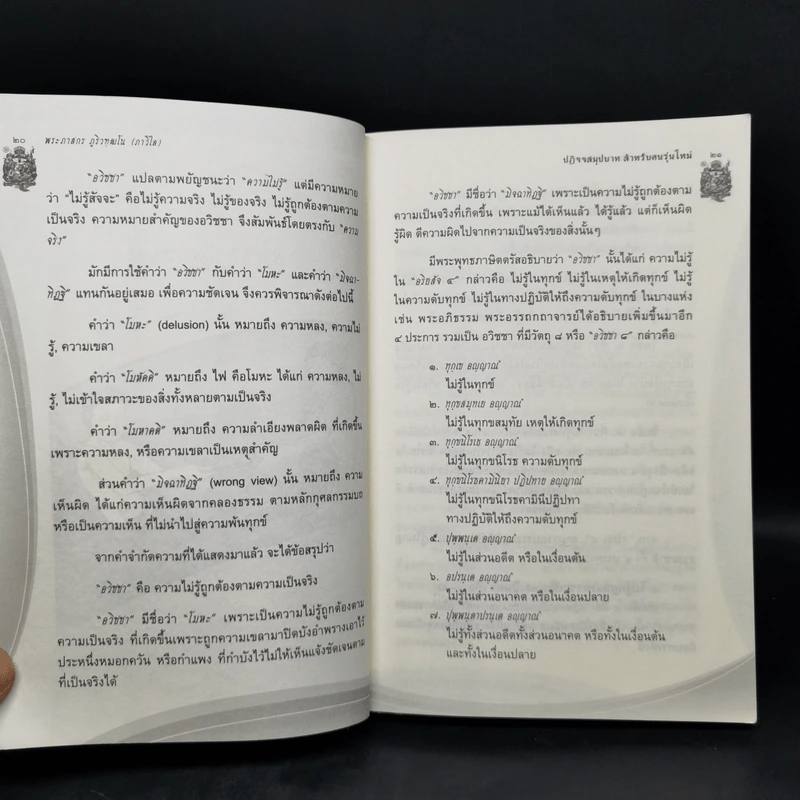 ๒๐
พระภาสกร ภูริวฑฺฒโน (ภาวิไล)
"อวิชชา" แปลตามพยัญชนะว่า "ความไม่รู้" แต่มีความหมาย
ว่า "ไม่รู้สัจจะ" คือไม่รู้ความจริง ไม่รู้ของจริง ไม่รู้ถูกต้องตามความ
เป็นจริง ความหมายสำคัญของอวิชชา จึงสัมพันธ์โดยตรงกับ "ความ
จริง"
มักมีการใช้คำว่า "อวิชชา" กับคำว่า "โมหะ" และคำว่า "มิจฉา-
ทิฏฐิ" แทนกันอยู่เสมอ เพื่อความชัดเจน จึงควรพิจารณาดังต่อไปนี้
คำว่า "โมหะ" (delusion) นั้น หมายถึง ความหลง, ความไม่
รู้, ความเขลา
คำว่า "โมหัคคิ" หมายถึง ไฟ คือโมหะ ได้แก่ ความหลง, ไม่
รู้, ไม่เข้าใจสภาวะของสิ่งทั้งหลายตามเป็นจริง
คำว่า "โมหาคติ" หมายถึง ความลำเอียงพลาดผิด ที่เกิดขึ้น
เพราะความหลง, หรือความเขลาเป็นเหตุสำคัญ
ส่วนคำว่า "มิจฉาทิฏฐิ" (wrong view) นั้น หมายถึง ความ
เห็นผิด ได้แก่ความเห็นผิดจากคลองธรรม ตามหลักกุศลกรรมบถ
หรือเป็นความเห็น ที่ไม่นำไปสู่ความพ้นทุกข์
จากคำจำกัดความที่ได้แสดงมาแล้ว จะได้ข้อสรุปว่า
"อวิชชา" คือ ความไม่รู้ถูกต้องตามความเป็นจริง
"อวิชชา" มีชื่อว่า "โมหะ" เพราะเป็นความไม่รู้ถูกต้องตาม
ความเป็นจริง ที่เกิดขึ้นเพราะถูกความเขลามาปิดบังอำพรางเอาไว้
ประหนึ่งหมอกควัน หรือกำแพง ที่กำบังไว้ไม่ให้เห็นแจ้งชัดเจนตาม
ที่เป็นจริงได้
ปฏิจจสมุปบาท สำหรับคนรุ่นใหม่
๒๑
"อวิชชา" มีชื่อว่า "มิจฉาทิฏฐิ" เพราะเป็นความไม่รู้ถูกต้องตาม
ความเป็นจริงที่เกิดขึ้น เพราะแม้ได้เห็นแล้ว ได้รู้แล้ว แต่ก็เห็นผิด
รู้ผิด ตีความผิดไปจากความเป็นจริงของสิ่งนั้นๆ
มีพระพุทธภาษิตตรัสอธิบายว่า "อวิชชา" นั้นได้แก่ ความไม่รู้
ใน "อริยสัจ ๔" กล่าวคือ ไม่รู้ในทุกข์ ไม่รู้ในเหตุให้เกิดทุกข์ ไม่รู้
ในความดับทุกข์ ไม่รู้ในทางปฏิบัติให้ถึงความดับทุกข์ ในบางแห่ง
เช่น พระอภิธรรม พระอรรถกถาจารย์ได้อธิบายเพิ่มขึ้นมาอีก
๔ ประการ รวมเป็น อวิชชา ที่มีวัตถุ ๘ หรือ "อวิชชา ๘" กล่าวคือ
๑. ทุกฺเข อญฺญาณํ
ไม่รู้ในทุกข์
๒. ทุกฺขสมุทเย อญฺญาณํ
ไม่รู้ในทุกขสมุทัย เหตุให้เกิดทุกข์
๓. ทุกฺขนิโรเธ อญฺญาณํ
ไม่รู้ในทุกขนิโรธ ความดับทุกข์
๔. ทุกฺขนิโรธคามินิยา ปฏิปทาย อญฺญาณํ
ไม่รู้ในทุกขนิโรธคามินีปฏิปทา
ทางปฏิบัติให้ถึงความดับทุกข์
๕. ปุพฺพนฺเต อญฺญาณํ
ไม่รู้ในส่วนอดีต หรือในเงื่อนต้น
๖. อปรนฺเต อญฺญาณํ
ไม่รู้ในส่วนอนาคต หรือในเงื่อนปลาย
๗. ปุพฺพนฺตาปรนฺเต อญฺญาณํ
ไม่รู้ทั้งส่วนอดีตทั้งส่วนอนาคต หรือทั้งในเงื่อนต้น
และทั้งในเงื่อนปลาย